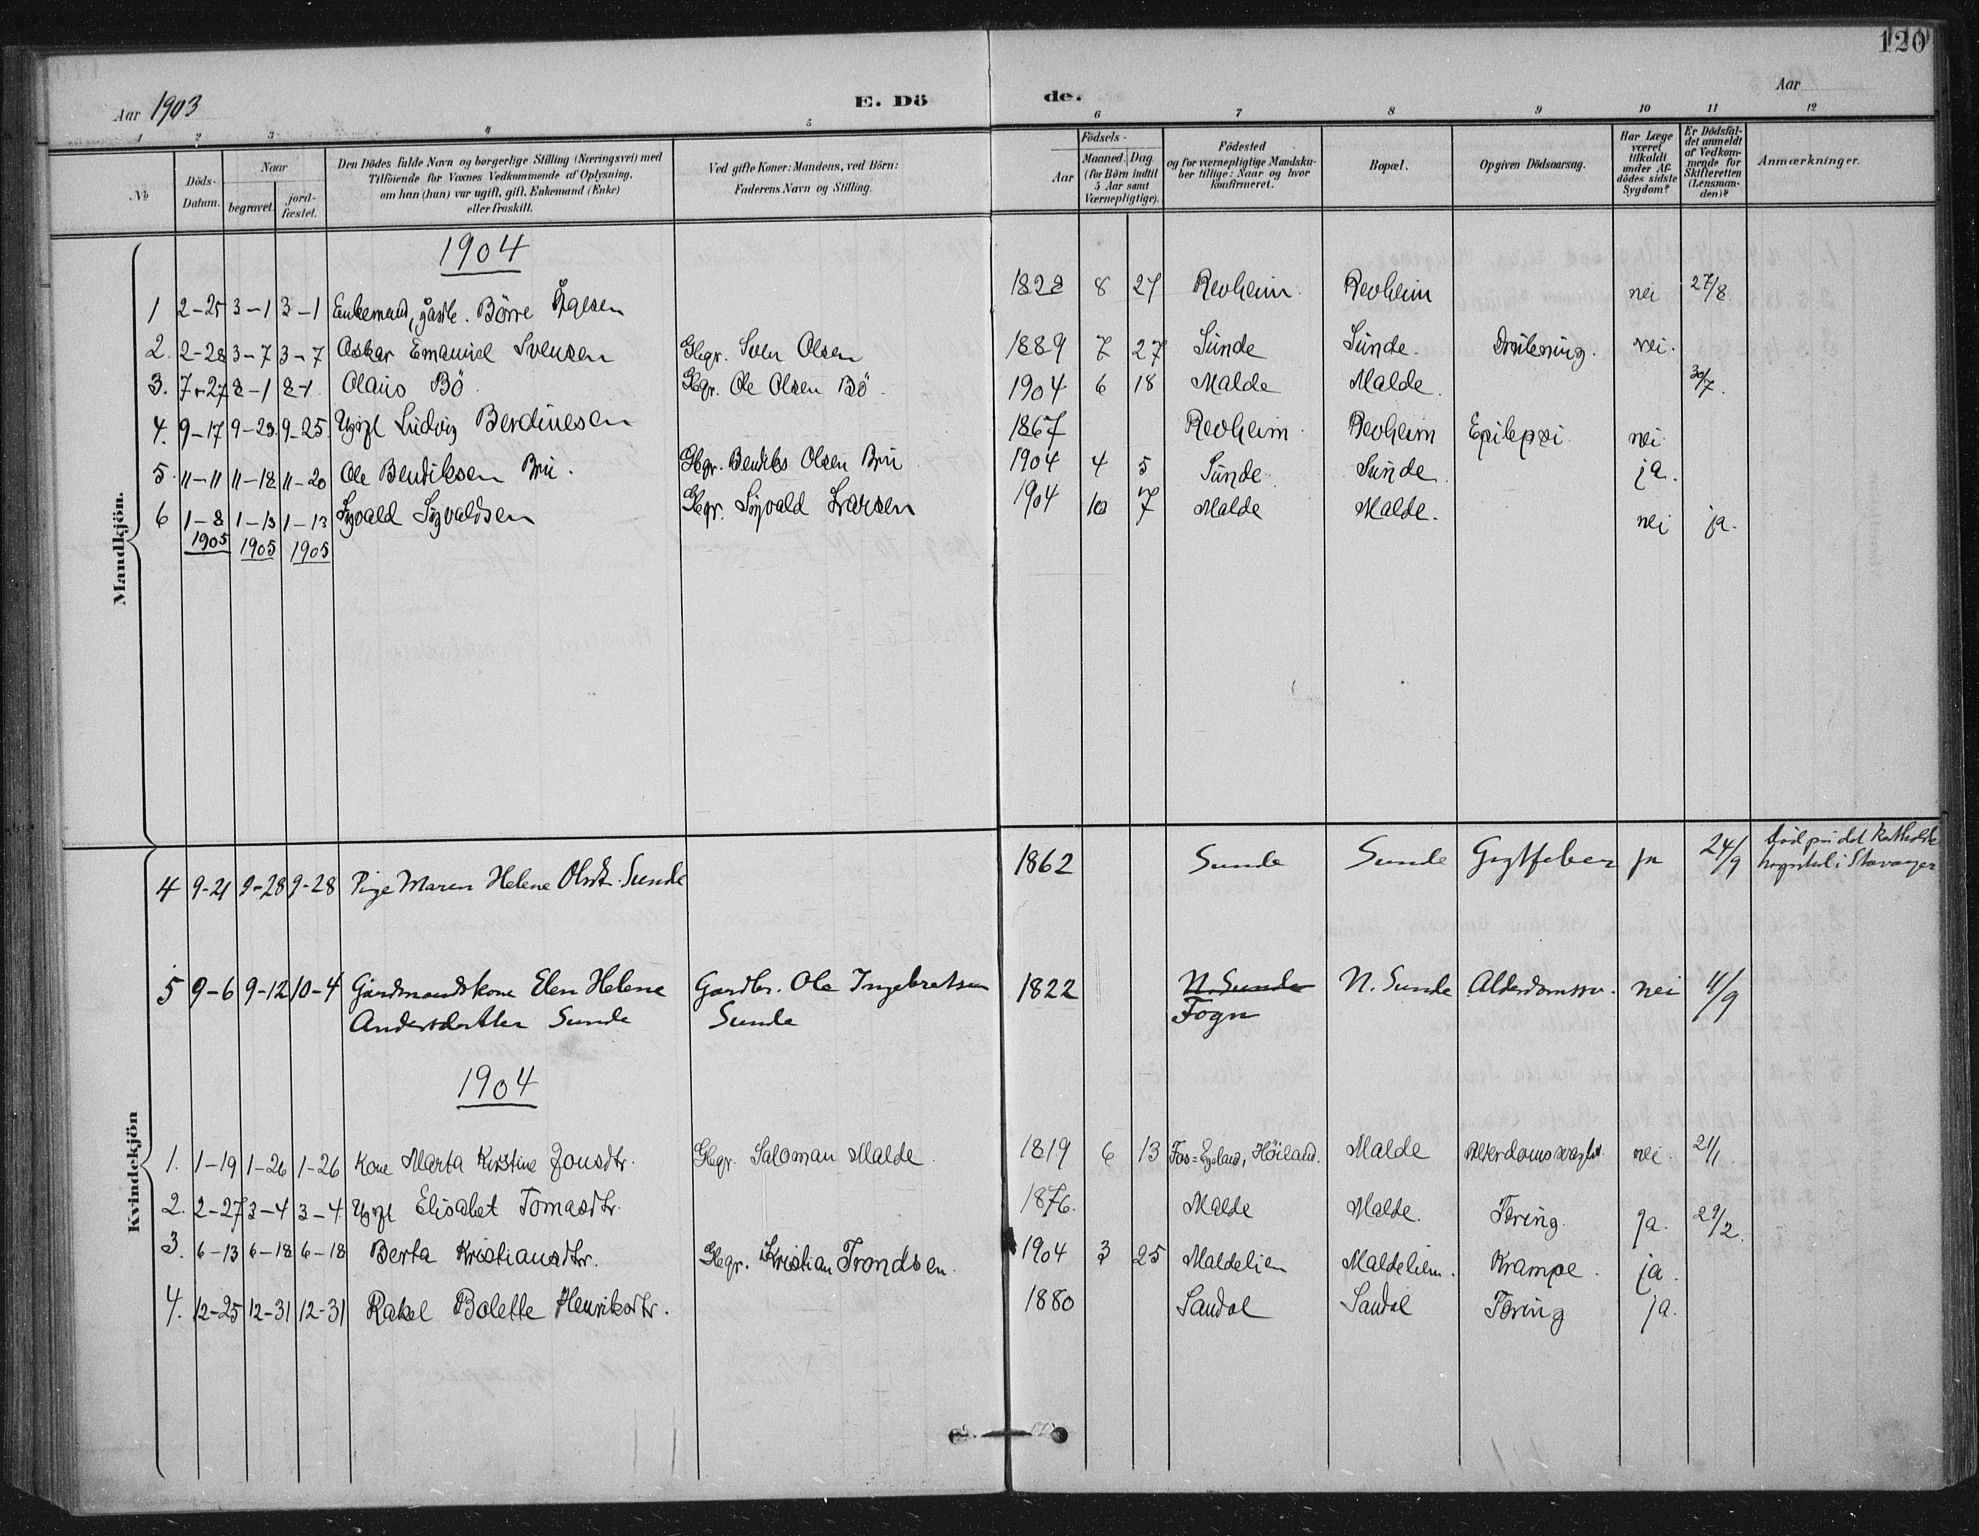 120
Aar 1903
E. Dö de.
Aar
1 2 3 4 5 6 7 8 9 10 11 12
No
Döds-Datum.
Naar
begravet.
jord-fæstet.
Den Dödes fulde Navn og borgerlige Stilling (Næringsvei) med
Tilföiende for Voxnes Vedkommende af Oplysning,
om han (hun) var ugift, gift, Enkemand (Enke)
eller fraskilt.
Ved gifte Koner: Mandens, ved Börn:
Faderens Navn og Stilling.
Födsels-
Aar
Maaned. Dag
(for Börn indtil
5 Aar samt
Værnepligtige).
Födested
og for værnepligtige Mandska-
ber tillige: Naar og hvor
konfirmeret.
Bopæl.
Opgiven Dödsaarsag.
Har Læge
været
tilkaldt
under Af-
dödes sidste
Sygdom?
Er Dödsfal-
det anmeldt
af Vedkom-
mende for
Skifteretten
(Lensman-
den)?
Anmærkninger.
Mandkjön.
1904
1 2-25 3-1 3-1 Enkemand, Börre 1828 8 27 Revheim Revheim nei 27/8
2. 2-28 3-7 3-7 Oskar Emanuel Svensen Gbgr. Sven Olsen 1889 7 27 Sunde Sunde. Drukning. nei.
3. 7-27 8-1 8-1 Olaus Bö Gbgr. Ole Olsen Bö. 1904 6 18 Malde Malde. 30/7.
4. 9-17 9-23 9-25 Ugift Ludvig Berdinesen 1867 Revheim Revheim Epilepsi nei
5. 11-11 11-18 11-20 Ole Bendiksen Bru. Gbgr. Bendiks Olsen Bru 1904 4 5 Sunde Sunde ja.
6 1-8 1-13 1-13 Sigvald Sigvaldsen Gbgr. Sigvald Larsen 1904 10 7 Malde Malde. nei ja.
1905 1905 1905
Kvindekjön
4 9-21 9-28 9-28 Pige Maren Helene Olsdt. Sunde 1862 Sunde Sunde Gigtfeber ja 24/9 död paa det katholske
hospital i Stavanger
5 9-6 9-12 10-4 Gardmandskone Elen Helene Gardbr. Ole Ingebretsen 1822 N. Sunde N. Sunde Alderdomssv. nei 11/9
Andersdatter Sunde Sunde Fogn
1904
1. 1-19 1-26 1-26 Kone Marta Kirstine Jonsdtr. Gbgr. Saloman Malde 1819 6 13 Höiland. Malde Alderdomssvaghed. nei. 21/1.
2. 2-27 3-4 3-4 Ugift Elisabet Tomasdtr. 1876. Malde Malde. Tæring. ja. 29/2.
3. 6-13 6-18 6-18 Berta Kristiansdtr. Gbgr. Kristian Trondsen. 1904 3 25 Maldelien Maldelien. Krampe. ja.
4. 12-25 12-31 12-31 Rakel Bolette Henriksdtr. 1880 Sandal Sandal Tæring ja.